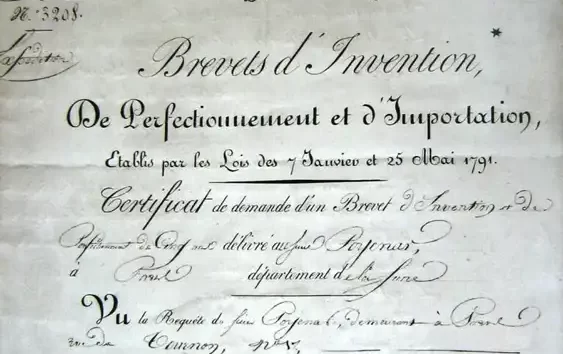 N.° 3208.
Expédition
Brevets d'Invention,
De Perfectionnement et d'Importation,
Etablis par les Lois des 7 Janvier et 25 Mai 1791.
Certificat de demande d'un Brevet d'Invention et de
Perfectionnement de Cinq ans délivré au Sieur
à département de la Seine
Vu la Requête du Sieur demeurant à
rue de Tournon,